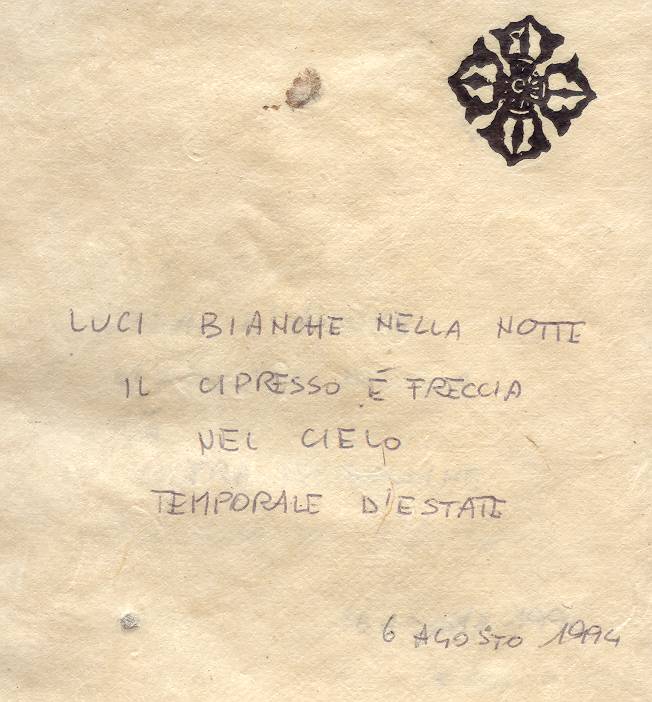 LUCI BIANCHE NELLA NOTTE
IL CIPRESSO É FRECCIA
NEL CIELO
TEMPORALE D'ESTATE
6 AGOSTO 1994